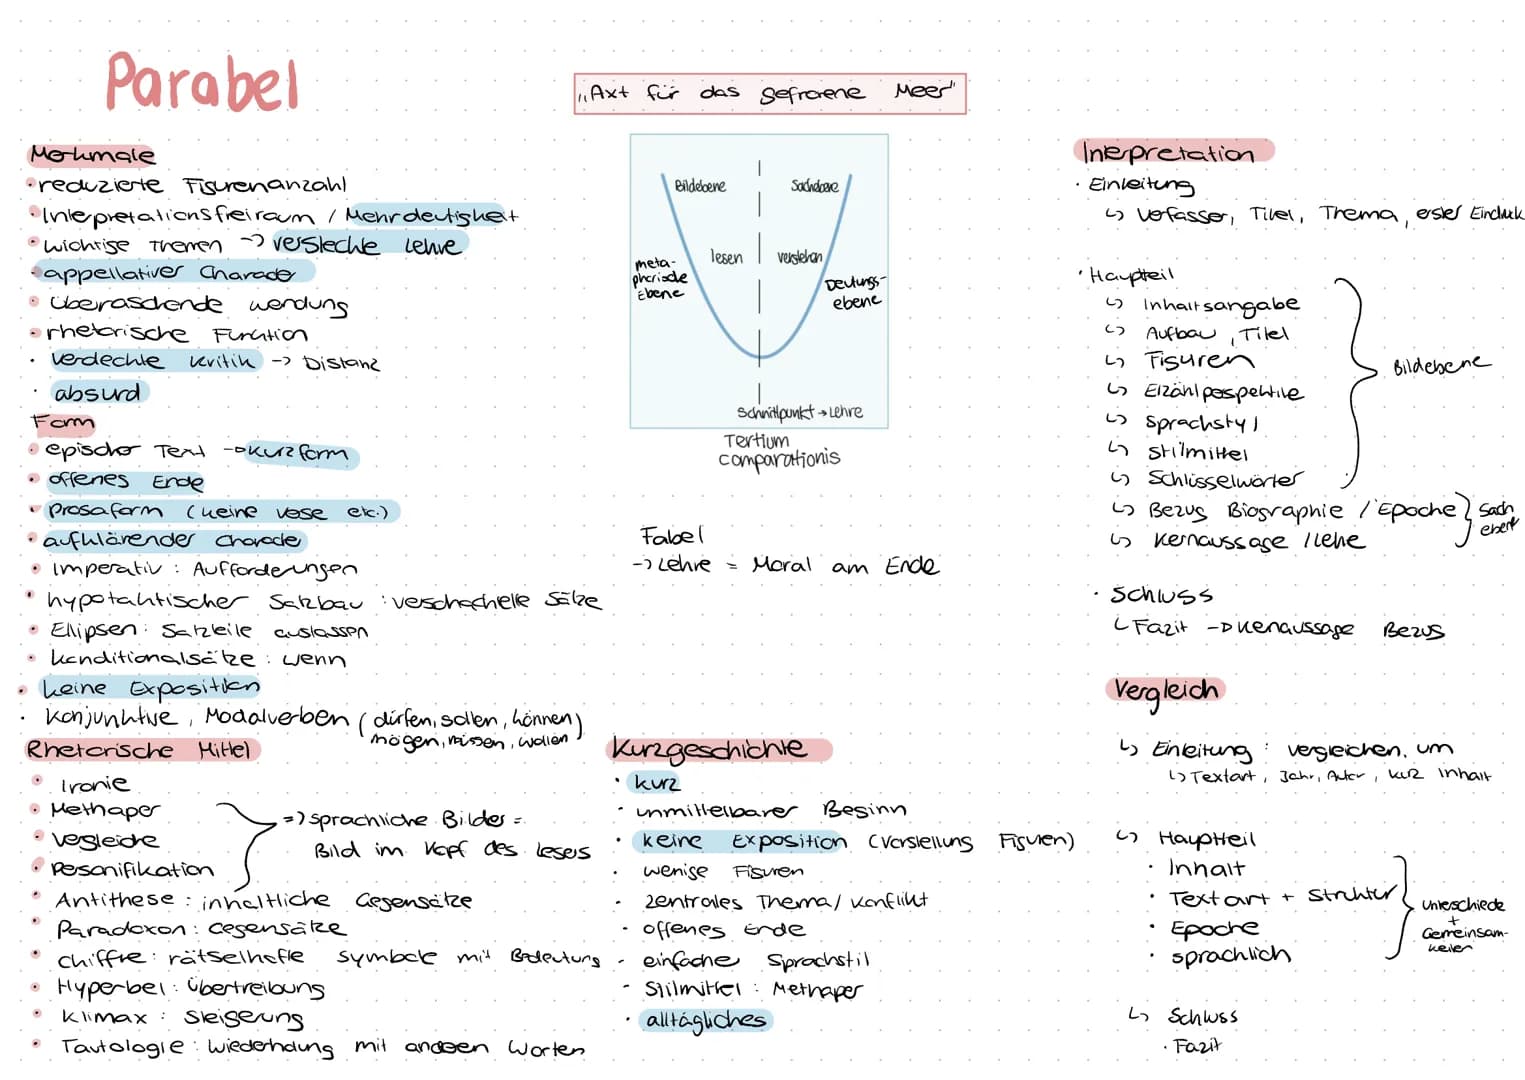 Parabel
„Axt für das gefrorene Meer"
Merkmale
• reduzierte Figurenanzahl
• Interpretationsfreiraum / Mehrdeutigkeit
• wichtige Themen -> versteckte Lehre
• appellativer Charakter
• überraschende Wendung
• rhetorische Funktion
• verdeckte Kritik -> Distanz
• absurd
Form
• epischer Text -> Kurzform
• offenes Ende
• Prosaform (keine Verse etc.)
• aufklärender Charakter
• Imperativ : Aufforderungen
• hypotaktischer Satzbau : verschachtelte Sätze
• Ellipsen : Satzteile auslassen
• Konditionalsätze : wenn
• keine Exposition
• Konjunktive , Modalverben ( dürfen, sollen, können
mögen, müssen, wollen )
Rhetorische Mittel
• Ironie
• Methaper
• Vergleiche
• Personifikation
=> sprachliche Bilder =
Bild im Kopf des Lesers
• Antithese : inhaltliche Gegensätze
• Paradoxon : Gegensätze
• Chiffre : rätselhafte Symbole mit Bedeutung
• Hyperbel : Übertreibung
• Klimax : Steigerung
• Tautologie : Wiederholung mit anderen Worten
Bildebene
Sachebene
lesen
verstehen
meta-
phorische
Ebene
Deutungs-
ebene
Schnittpunkt -> Lehre
Tertium
comparationis
Fabel
-> Lehre = Moral am Ende
Kurzgeschichte
• kurz
• unmittelbarer Beginn
• keine Exposition (Vorstellung Figuren)
• wenige Figuren
- zentrales Thema / Konflikt
• offenes Ende
- einfacher Sprachstil
- Stilmittel : Methaper
• alltägliches
Interpretation
• Einleitung
↳ Verfasser, Titel, Thema, erster Eindruck
• Hauptteil
↳ Inhaltsangabe
↳ Aufbau, Titel
↳ Figuren
↳ Erzählperspektive
↳ Sprachstyl
↳ Stilmittel
↳ Schlüsselwörter
Bildebene
↳ Bezug Biographie / Epoche
↳ Kernaussage / Lehre
Sach
ebene
• Schluss
↳ Fazit -> Kernaussage Bezug
Vergleich
↳ Einleitung : vergleichen, um
↳ Textart, Jahr, Autor, kurz Inhalt
↳ Hauptteil
• Inhalt
• Textart + Struktur
• Epoche
• sprachlich
Unterschiede
+
Gemeinsam-
keiten
↳ Schluss
• Fazit